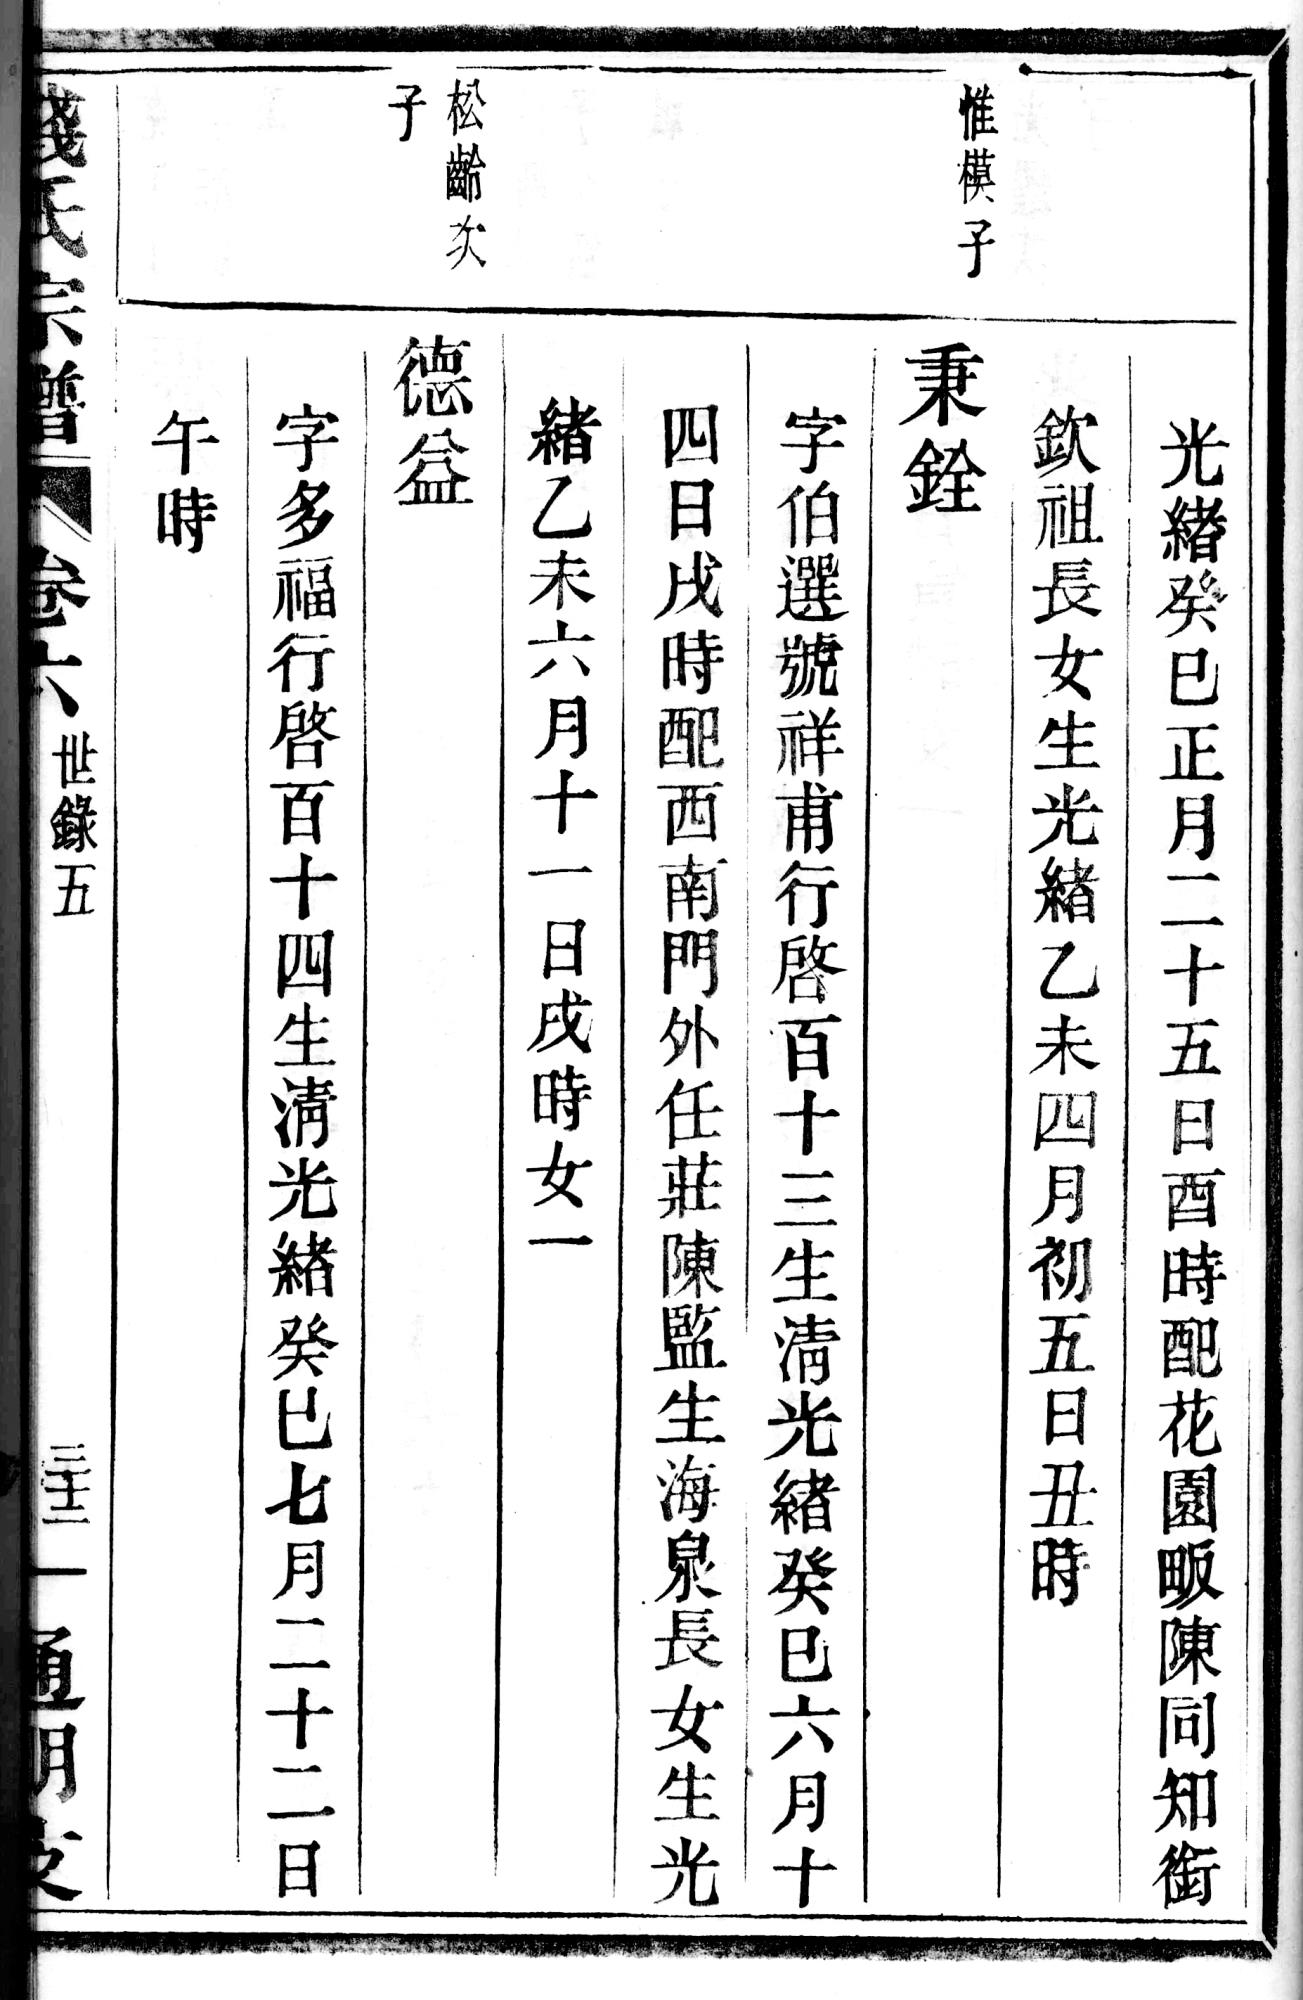 光緒癸巳正月二十五日酉時配花園畈陳同知銜
欽祖長女生光緒乙未四月初五日丑時
惟模子
秉銓
字伯選號祥甫行啓百十三生淸光緒癸巳六月十
四日戌時配西南門外任莊陳監生海泉長女生光
緒乙未六月十一日戌時女一
松齡次
子
德益
字多福行啓百十四生淸光緒癸巳七月二十二日
午時
錢氏宗譜 卷六 世錄五 三十二 通明支